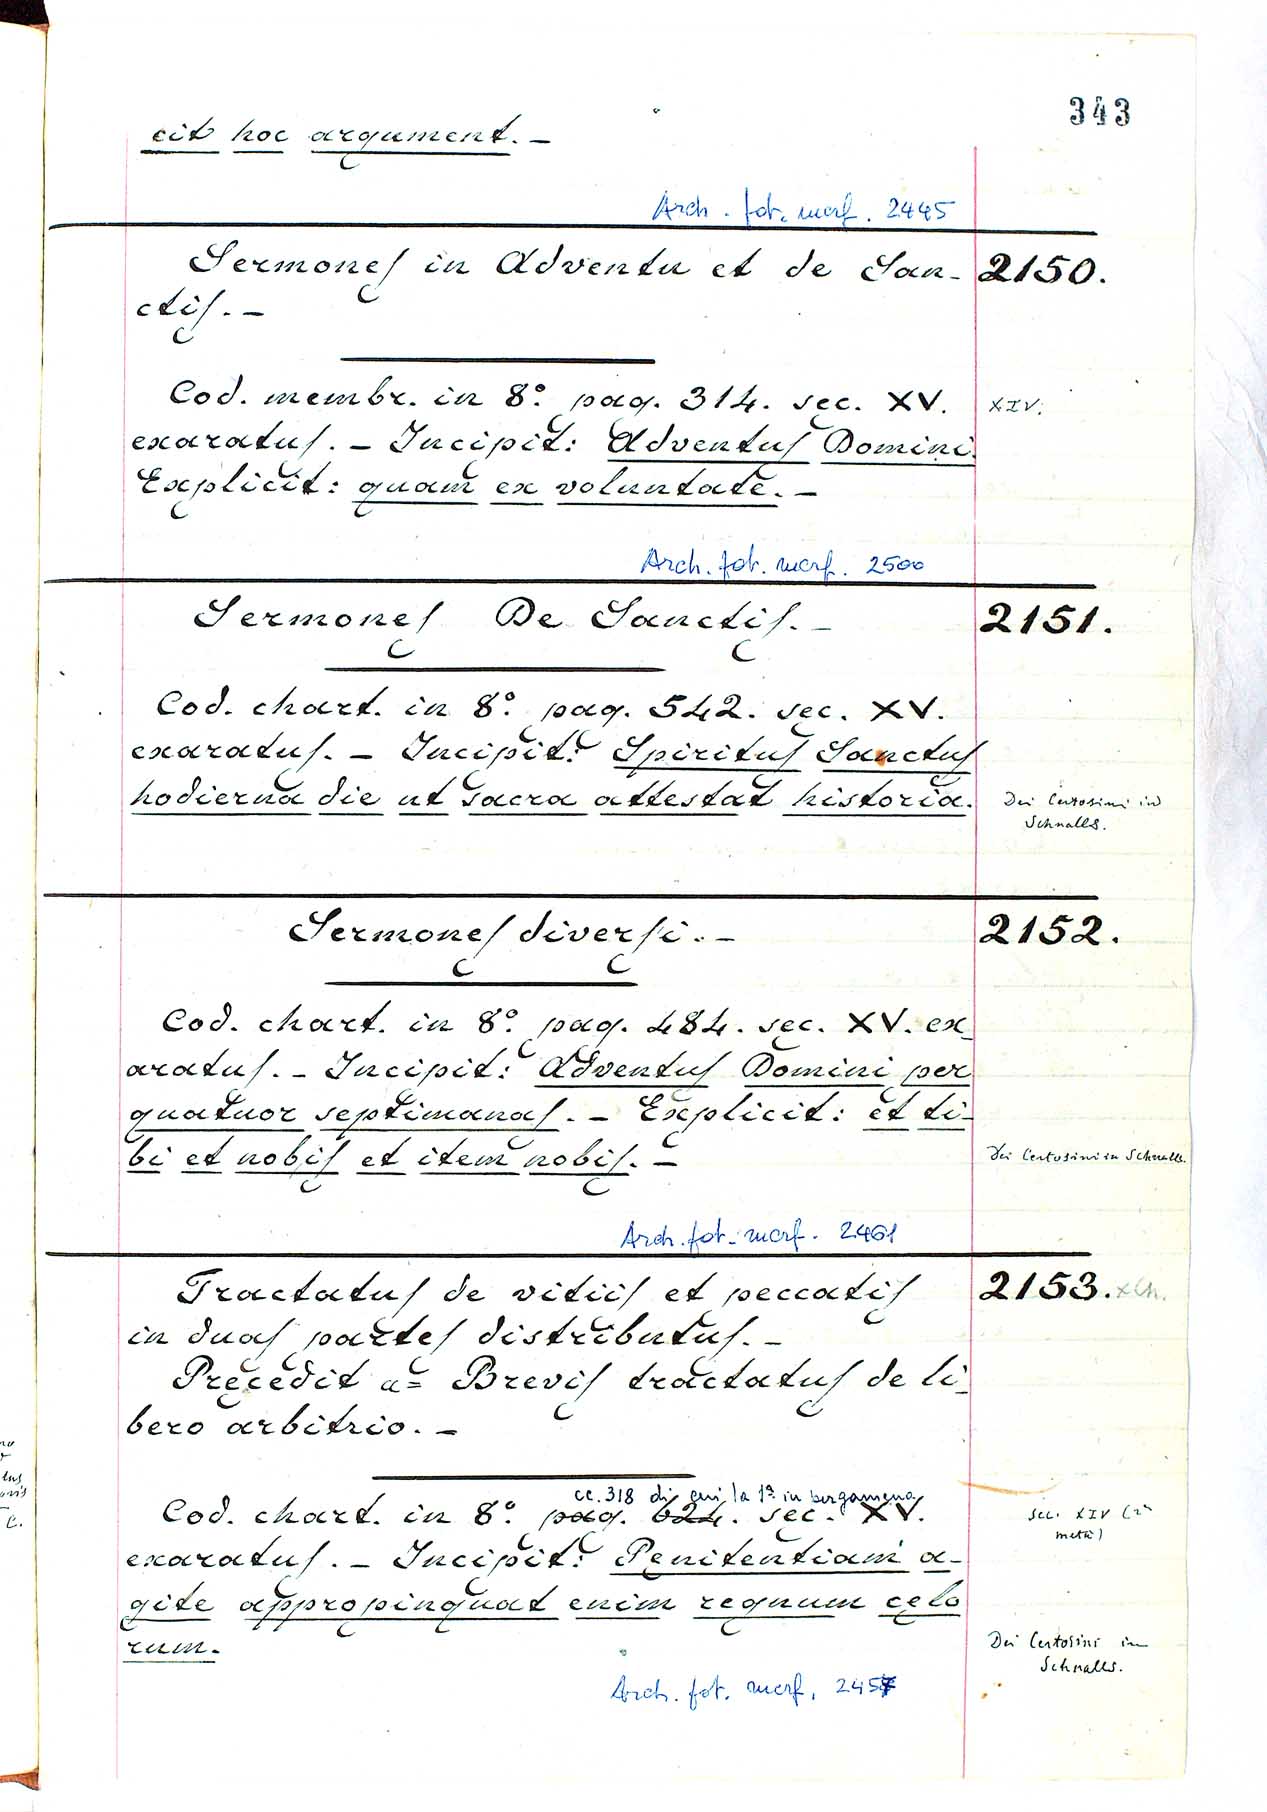 343
cit hoc argument. –
Arch. fot. merf. 2445
Sermones in Adventu et de San- 2150.
ctis. –
Cod. membr. in 8.° pag. 314. sec. XV. XIV.
exaratus. – Incipit: Adventus Domini.
Explicit: quam ex voluntate. –
Arch. fot. merf. 2500
Sermones De Sanctis. – 2151.
Cod. chart. in 8.° pag. 542. sec. XV.
exaratus. – Incipit: Spiritus Sanctus
hodierna die ut sacra attestat historia.
Dei Certosini in
Schnalls.
Sermones diversi. – 2152.
Cod. chart. in 8.° pag. 484. sec. XV. ex-
aratus. – Incipit: Adventus Domini per
quatuor septimanas. – Explicit: et ti-
bi et nobis et item nobis. –
Dei Certosini in Schnalls.
Arch. fot. merf. 2461
Tractatus de vitiis et peccatis 2153.
in duas partes distributus. –
Precedit a= Brevis tractatus de li-
bero arbitrio. –
cc. 318 di cui la 1ª in pergamena
Cod. chart. in 8.° pag. 624. sec. XV.
sec. XIV (2ª
metà)
exaratus. – Incipit: Penitentiam a-
gite appropinquat enim regnum celo
rum.
Dei Certosini in
Schnalls.
Arch. fot. merf. 2457